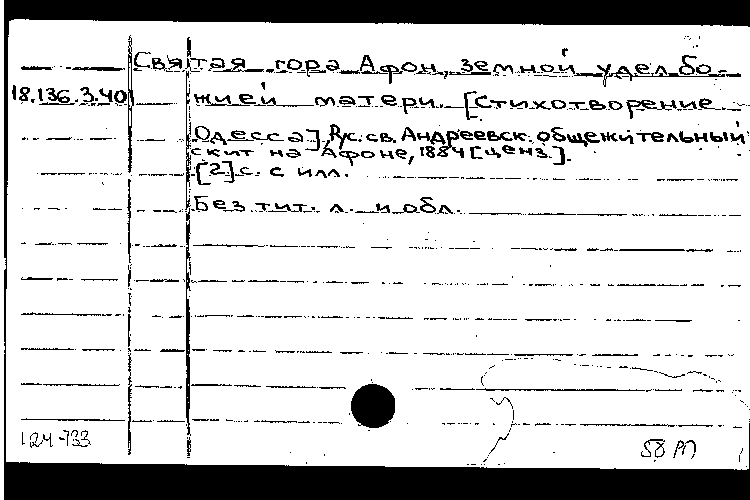 Святая гора Афон, земной удел бо-
18.136.3.40 жией матери. [Стихотворение
Одесса], Рус. св. Андреевск. общежительный
скит на Афоне, 1884 [ценз.].
[2] с. с илл.
Без тит. л. и обл.
124-733